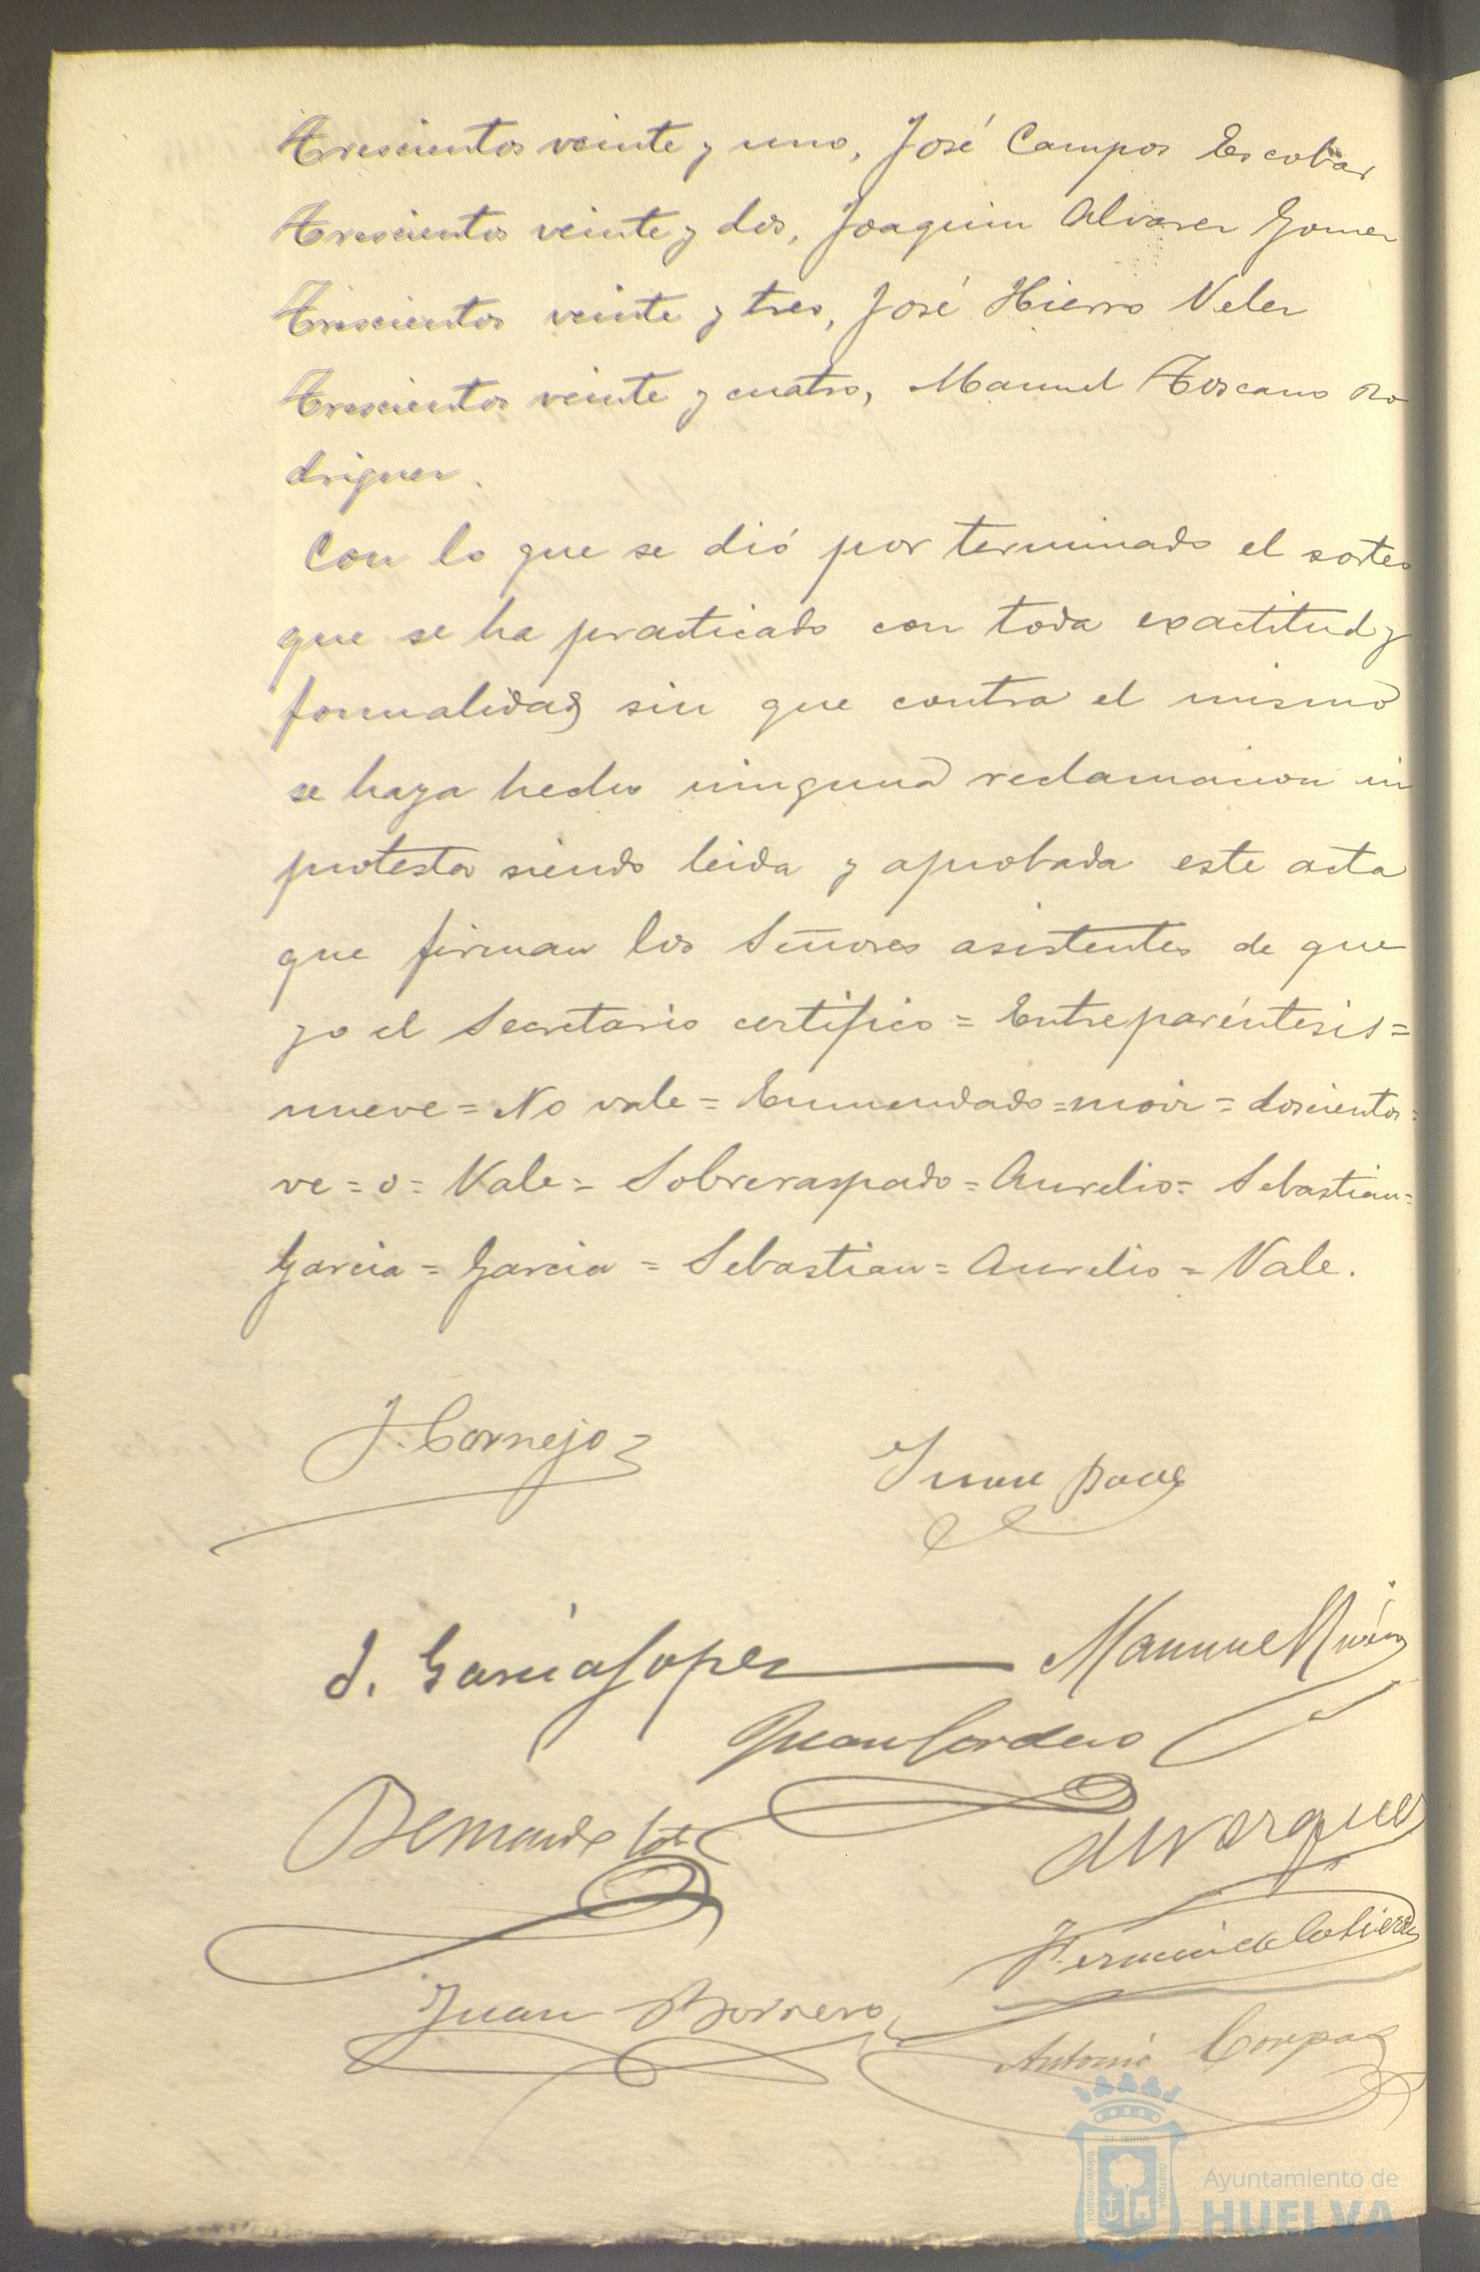 Trescientos veinte y uno, José Campos Escobar
Trescientos veinte y dos, Joaquin Alvarez Gomez
Trescientos veinte y tres, José Hierro Velez
Trescientos veinte y cuatro, Manuel Toscano Ro
driguez.
Con lo que se dió por terminado el sorteo
que se ha practicado con toda exactitud y
formalidad sin que contra el mismo
se haya hecho ninguna reclamacion ni
protesta siendo leida y aprobada este acta
que firman los Señores asistentes de que
yo el Secretario certifico = Entreparéntesis =
nueve = No vale = Enmendado = = doscientos =
ve = o = Vale = Sobreraspado = Aurelio = Sebastian =
Garcia = Garcia = Sebastian = Aurelio = Vale.
J. Cornejo
Juan
J. García Lopez Manuel
Juan Cordero
Vazquez
Juan Borrero
Antonio
PORTUS MARIS ET TERRAE CUSTODIA
Ayuntamiento de
HUELVA